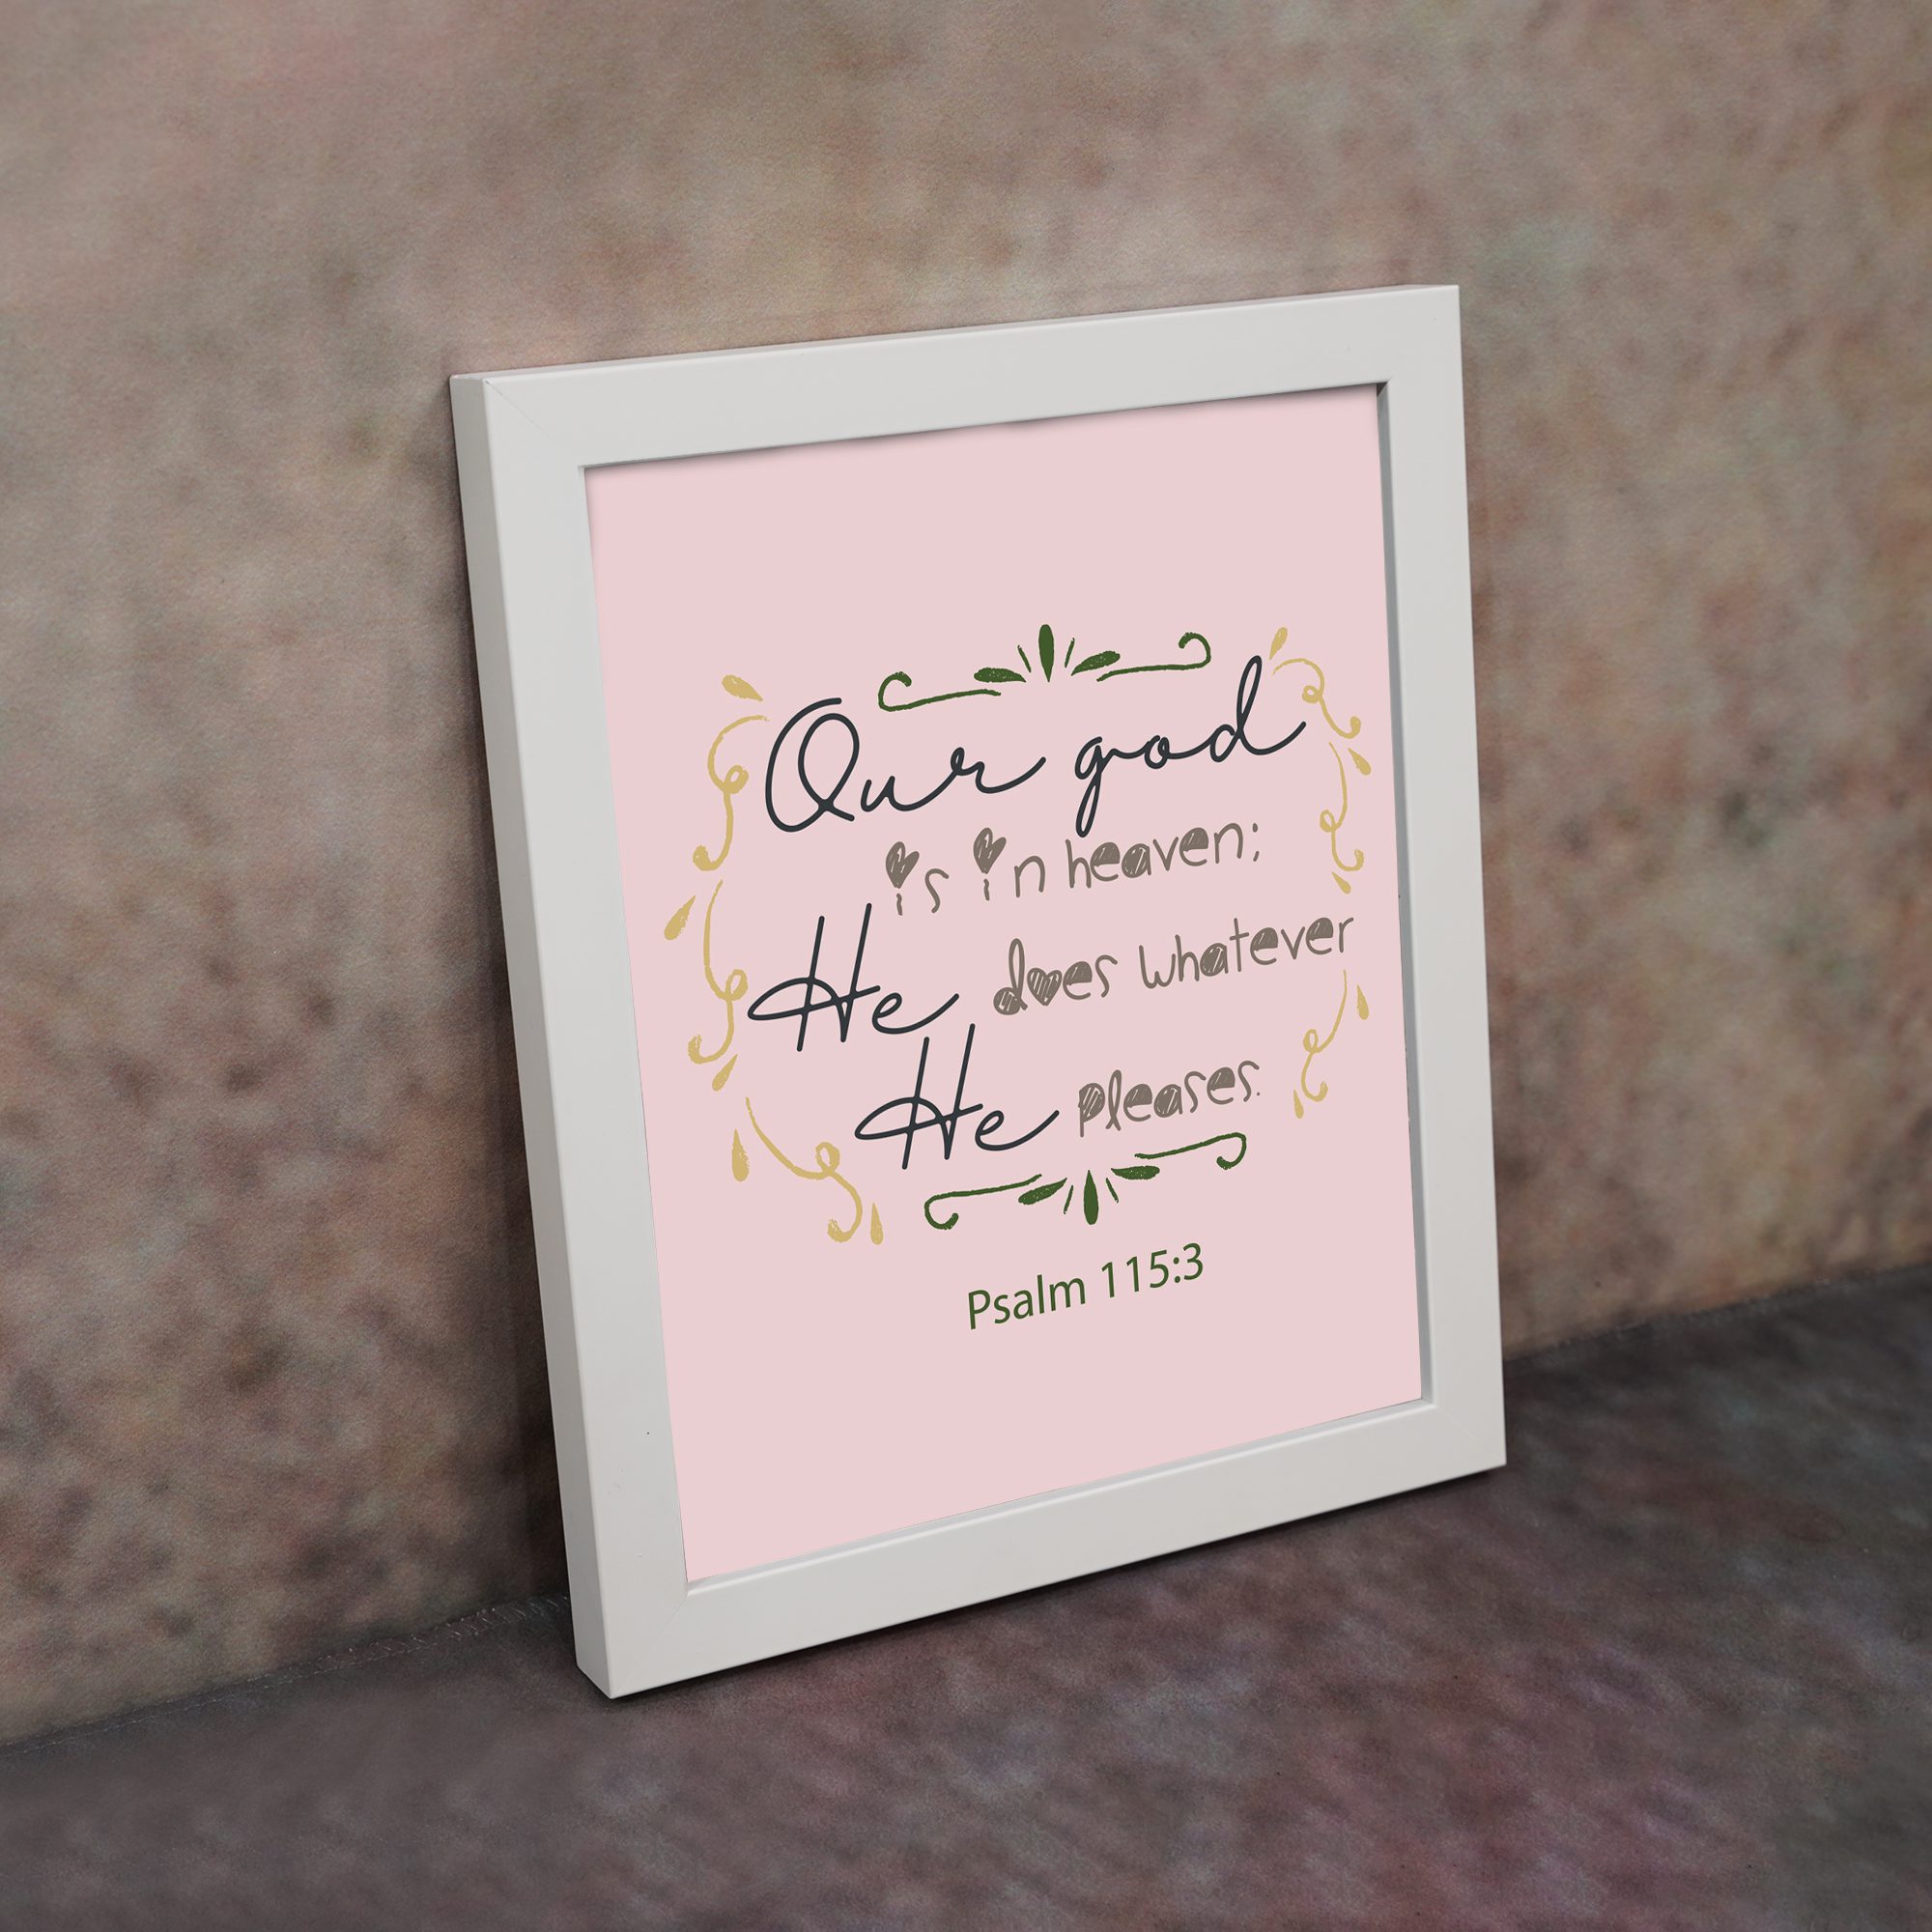 Our god
is in heaven;
He does whatever
He pleases.
Psalm 115:3